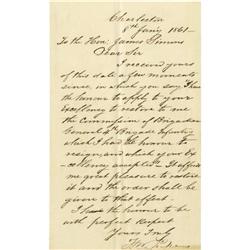 Charleston
8th Jany 1861
To the Hon: James Simons
Dear Sir
I received yours
of this date a few moments
since, in which you say I have
the honour to apply to your
Excellency to restore to me
the Commission of Brigadier
General 4th Brigade Infantry
which I had the honour to
resign, and which your Ex-
accepted. It affords
me great pleasure to restore
it and the order shall be
given to that effect.
I have the honour to be
with perfect Respect
Yours Truly